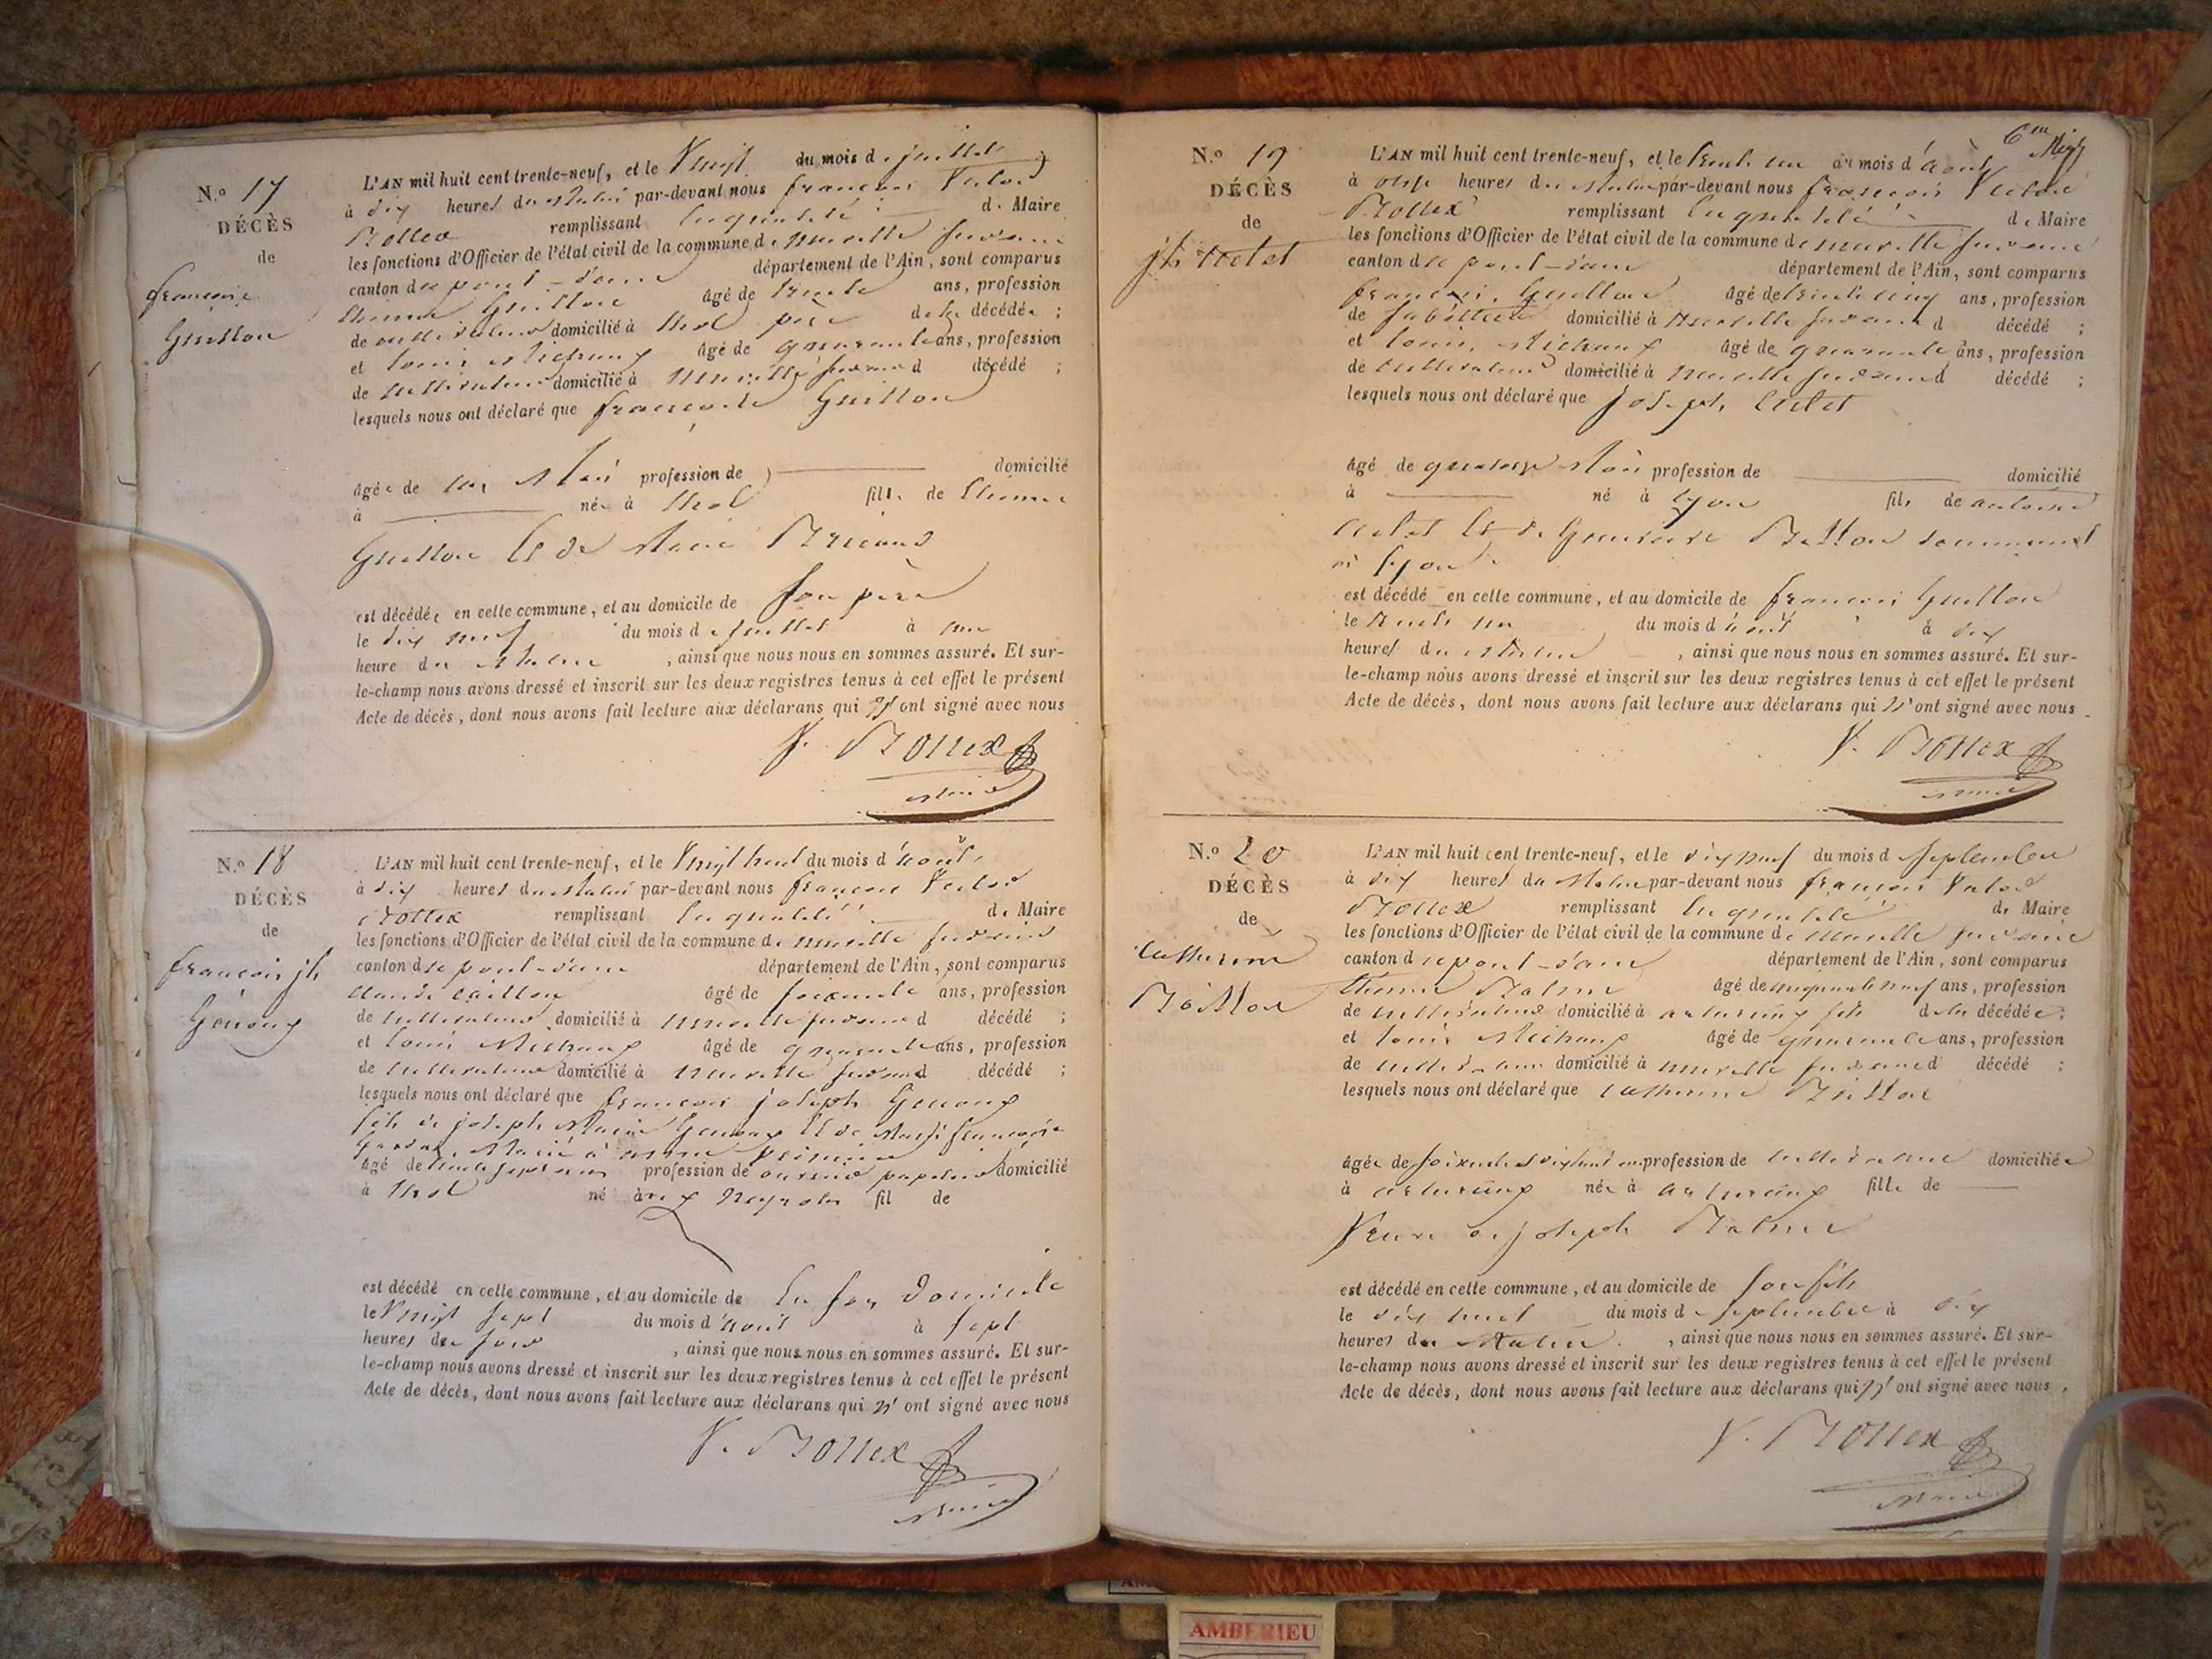 N.o 17
DÉCÈS
de
françoise
Guillon
L'AN mil huit cent trente-neuf, et le Vingt du mois de juillet
à dix heures du matin par-devant nous françois Victor
Bollex remplissant la qualité de Maire
les fonctions d'Officier de l'état civil de la commune de neuville sur ain
canton de pont-d'ain département de l'Ain, sont comparus
Etienne Guillon âgé de trente ans, profession
de cultivateur domicilié à thol père de la décédée ;
et Louis Michaux âgé de quarante ans, profession
de cultivateur domicilié à Neuville sur ain d décédé ;
lesquels nous ont déclaré que françoise Guillon
âgée de un Mois profession de domicilié
à née à thol fille de Etienne
Guillon Et de Marie
est décédée en cette commune, et au domicile de son père
le dix neuf du mois de juillet à une
heure du Matin, ainsi que nous nous en sommes assuré. Et sur-
le-champ nous avons dressé et inscrit sur les deux registres tenus à cet effet le présent
Acte de décès, dont nous avons fait lecture aux déclarans qui n'ont signé avec nous
V. Bollex
Maire
N.o 18
DÉCÈS
de
françois jh
Genoux
L'AN mil huit cent trente-neuf, et le Vingt huit du mois d'août
à dix heures du Matin par-devant nous françois Victor
Bollex remplissant la qualité de Maire
les fonctions d'Officier de l'état civil de la commune de neuville sur ain
canton de pont-d'ain département de l'Ain, sont comparus
Claude âgé de soixante ans, profession
de cultivateur domicilié à Neuville sur ain d décédé ;
et Louis Michaux âgé de quarante ans, profession
de cultivateur domicilié à Neuville sur ain d décédé ;
lesquels nous ont déclaré que françois joseph Genoux
fils de joseph Marie Genoux Et de françoise
Marié à
âgé de trente sept ans profession de ouvrier papetier domicilié
à thol né à neyroles fil de
est décédé en cette commune, et au domicile de En son Domicile
le Vingt sept du mois d'août à sept
heures du soir, ainsi que nous nous en sommes assuré. Et sur-
le-champ nous avons dressé et inscrit sur les deux registres tenus à cet effet le présent
Acte de décès, dont nous avons fait lecture aux déclarans qui n'ont signé avec nous
V. Bollex
Maire
6me
N.o 19
DÉCÈS
de
jh
L'AN mil huit cent trente-neuf, et le trente un du mois d'août
à onze heures du Matin par-devant nous françois Victor
Bollex remplissant la qualité de Maire
les fonctions d'Officier de l'état civil de la commune de neuville sur ain
canton de pont-d'ain département de l'Ain, sont comparus
françois Guillon âgé de trente cinq ans, profession
de sabottier domicilié à Neuville sur ain d décédé ;
et Louis Michaux âgé de quarante ans, profession
de cultivateur domicilié à Neuville sur ain d décédé ;
lesquels nous ont déclaré que joseph
âgé de quatorze Mois profession de domicilié
à né à Lyon fils de antoine
Et de
à Lyon
est décédé en cette commune, et au domicile de françois Guillon
le trente un du mois d'août à dix
heures du Matin, ainsi que nous nous en sommes assuré. Et sur-
le-champ nous avons dressé et inscrit sur les deux registres tenus à cet effet le présent
Acte de décès, dont nous avons fait lecture aux déclarans qui n'ont signé avec nous
V. Bollex
Maire
N.o 20
DÉCÈS
de
Catherine
L'AN mil huit cent trente-neuf, et le dix neuf du mois de septembre
à dix heures du Matin par-devant nous françois Victor
Bollex remplissant la qualité de Maire
les fonctions d'Officier de l'état civil de la commune de neuville sur ain
canton de pont-d'ain département de l'Ain, sont comparus
Etienne âgé de cinquante neuf ans, profession
de cultivateur domicilié à fils de la décédée ;
et Louis Michaux âgé de quarante ans, profession
de cultivateur domicilié à neuville sur ain d décédé ;
lesquels nous ont déclaré que Catherine
âgée de profession de cultivateur domiciliée
à née à fille de
Veuve de joseph
est décédé en cette commune, et au domicile de son fils
le dix huit du mois de septembre à dix
heures du Matin, ainsi que nous nous en sommes assuré. Et sur-
le-champ nous avons dressé et inscrit sur les deux registres tenus à cet effet le présent
Acte de décès, dont nous avons fait lecture aux déclarans qui n'ont signé avec nous.
V. Bollex
Maire
AMBERIEU